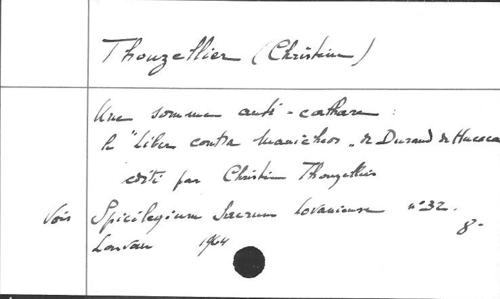 Thouzellier (Christine)
Une somme anti-cathare :
le "Liber contra Manicheos" de Durand de Huesca
édité par Christine Thouzellier
Voir Spicilegium Sacrum Lovaniense n° 32.
8°
Louvain 1964